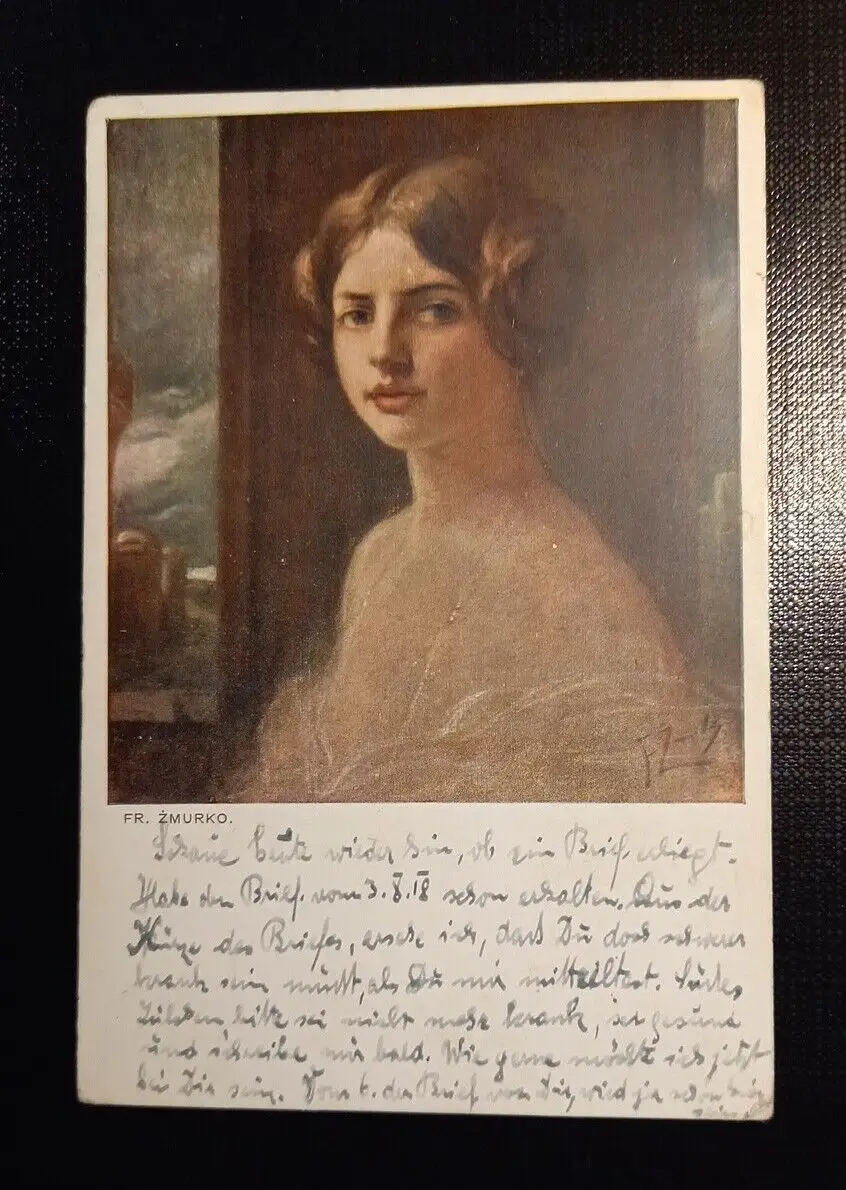 FR. ŻMURKO.
Schaue heute wieder hin, ob ein Brief erliegt.
Habe den Brief vom 3. X. 18 schon erhalten. Aus der
Kürze des Briefes, ersehe ich, daß Du doch schwerer
krank sein mußt, als Du mir mitteiltest.
bitte sei nicht mehr krank, sei gesund
und schreibe mir bald. Wie gerne möchte ich jetzt
bei Dir sein. Vom 6. der Brief von Dir, wird ja schon